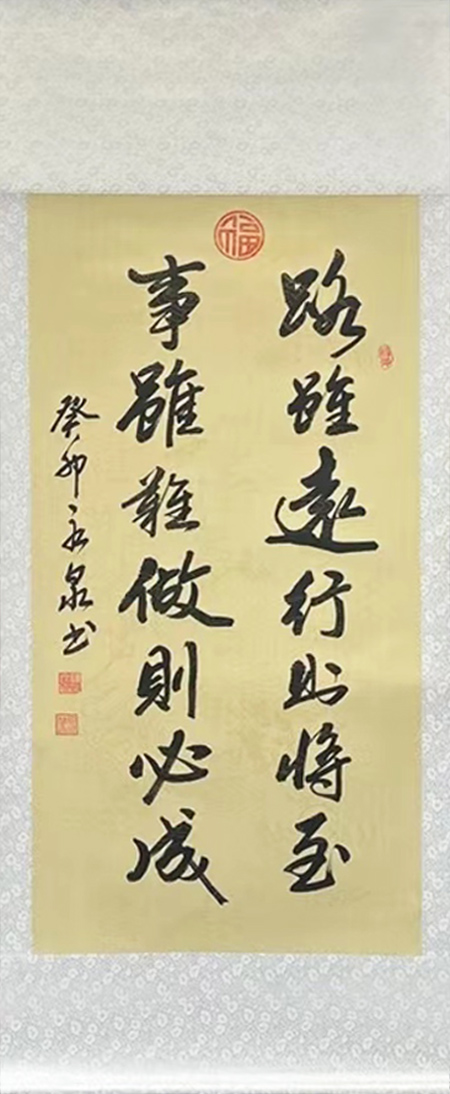 福
路雖遠行則將至
事雖難做則必成
癸卯永泉书